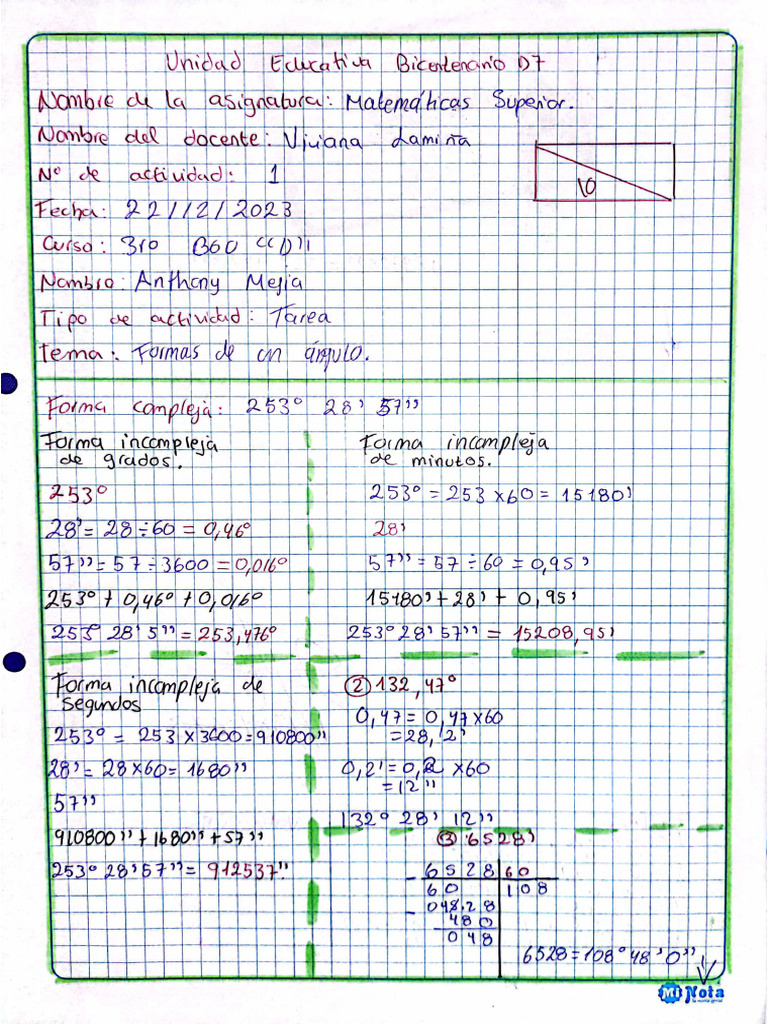 Unidad Educativa Bicentenario D7
Nombre de la asignatura: Matemáticas Superior.
Nombre del docente: Viviana Lamiña
N° de actividad: 1
10
Fecha: 22/12/2023
Curso: 3ro BGU "D"
Nombre: Anthony Mejia
Tipo de actividad: Tarea
Tema: Formas de un ángulo.
Forma compleja: 253° 28' 57''
Forma incompleja
de grados.
253°
28' = 28 ÷ 60 = 0,46°
57'' = 57 ÷ 3600 = 0,016°
253° + 0,46° + 0,016°
253° 28' 5'' = 253,476°
Forma incompleja
de minutos.
253° = 253 x 60 = 15180'
28'
57'' = 57 ÷ 60 = 0,95'
15180' + 28' + 0,95'
253° 28' 57'' = 15208,95'
Forma incompleja de
segundos
253° = 253 x 3600 = 910800''
28' = 28 x 60 = 1680''
57''
910800'' + 1680'' + 57''
253° 28' 57'' = 912537''.
② 132,47°
0,47 = 0,47 x 60
= 28,2'
0,2' = 0,2 x 60
= 12''
132° 28' 12''
③ 6528'
- 6528 60
60 108
- 048.28
480
048
6528 = 108° 48' 0''
Mi Nota